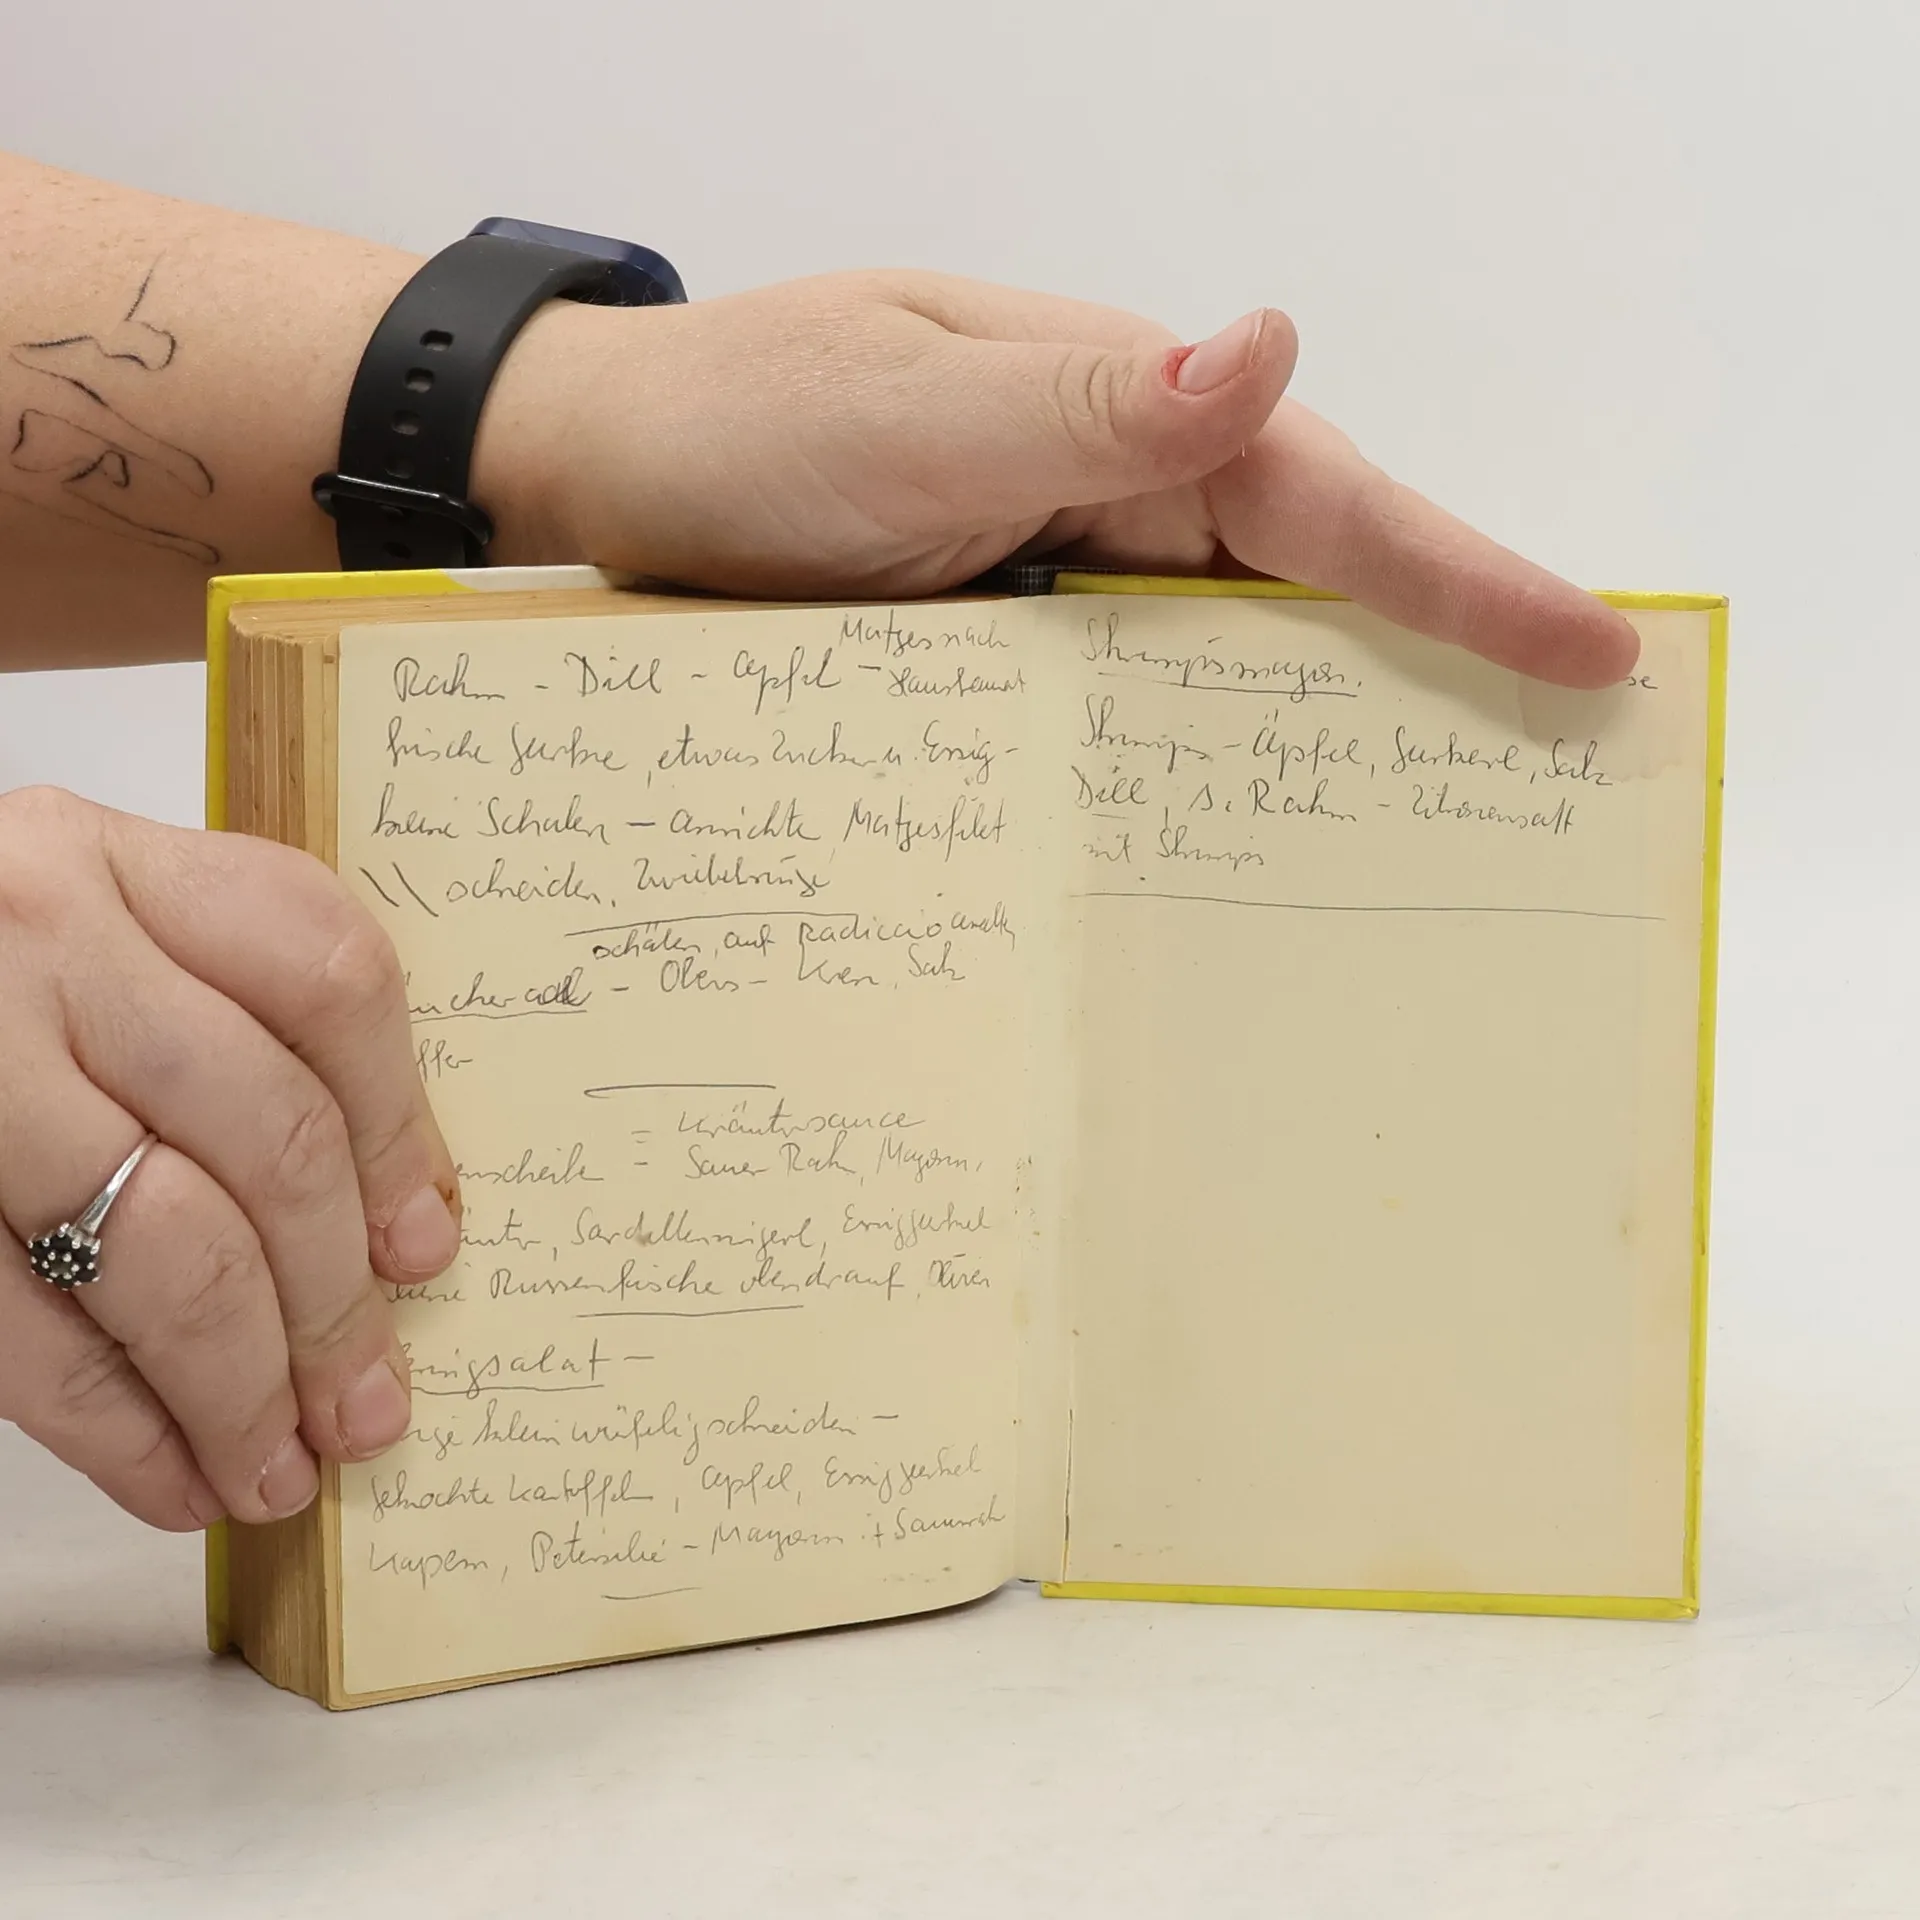 Matjes nach
Rahm - Dill - Apfel - Hausfrauenart
frische Gurke, etwas Zucker u. Essig -
kleine Schalen - anrichte, Matjesfilet
schneiden, Zwiebelringe
schälen, auf Radiccio
- Obers - Kren, Salz
ffer
= Kräutersauce
enscheibe - Sauer Rahm, Mayonn.
äuter, Sardellenringerl, Essiggurkerl
Russenfische obendrauf, Oliven
ringsalat -
klein würfelig schneiden -
gekochte Kartoffeln, Apfel, Essiggurkerl
Kapern, Petersilie - Mayonn. + Sauerrah
Shrimpsmayon.
se
Shrimps - Äpfel, Gurkerl, Salz
Dill, s. Rahm - Zitronensaft
mit Shrimps